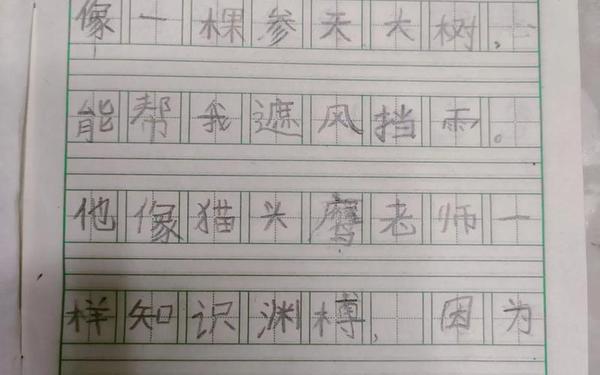 像一棵参天大树，一
能帮我遮风挡雨。
他像猫头鹰老师一
样知识渊博，因为